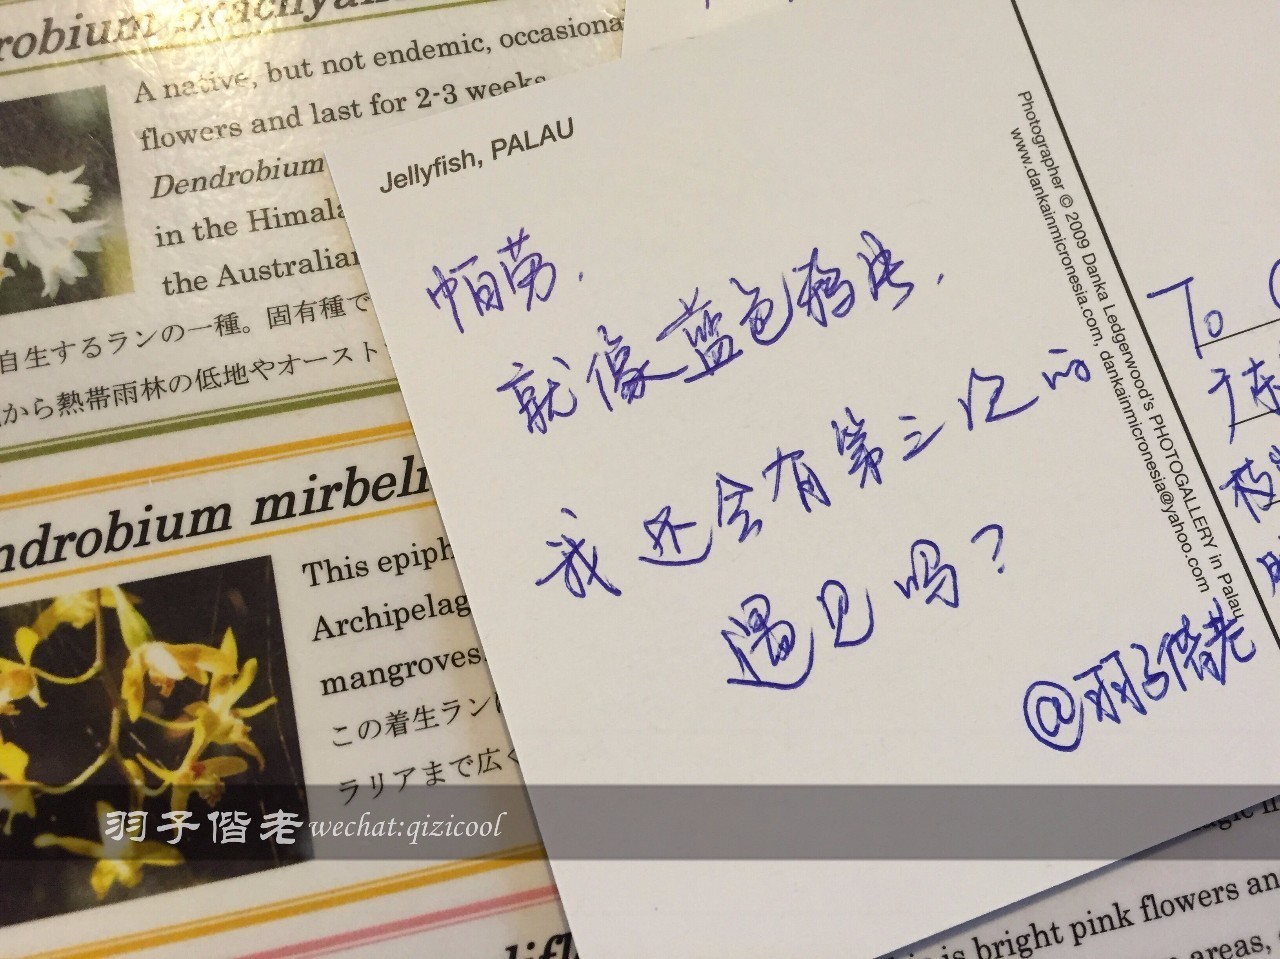 robium brachyan
A native, but not endemic, occasiona
flowers and last for 2-3 weeks
Dendrobium
in the Himala
the Australian
自生するランの一種。固有種で
から熱帯雨林の低地やオースト
ndrobium mirbeli
This epiph
Archipelag
mangroves.
この着生ラン
ラリアまで広く
Jellyfish, PALAU
帕劳，
就像蓝色
我还会有第三次的
遇见吗？
@羽子偕老
Photographer © 2009 Danka Ledgerwood's PHOTOGALLERY in Palau
www.dankainmicronesia.com, dankainmicronesia@yahoo.com
To
广东
羽子偕老wechat:qizicool
is bright pink flowers an
areas,